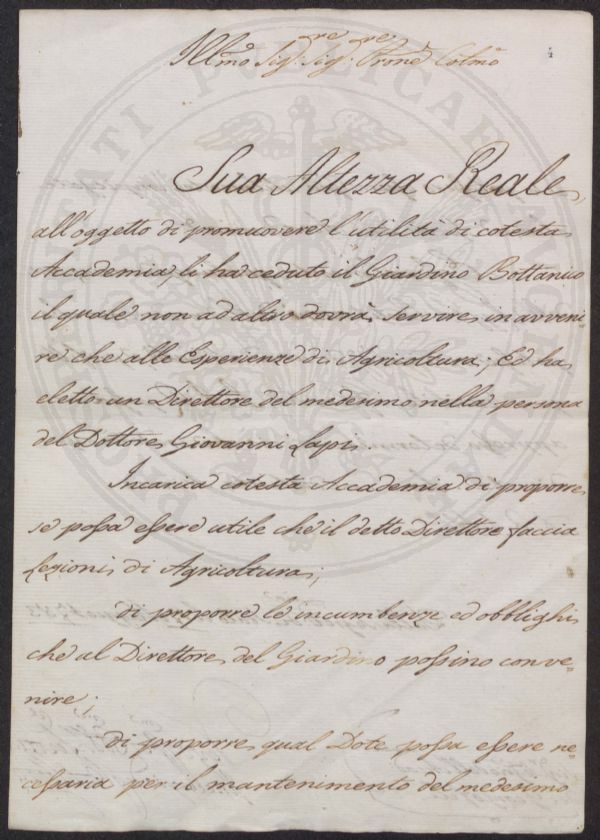 Ill.mo Sig.re Sig.re Prone Colmo
Sua Altezza Reale
all'oggetto di promuovere l'utilità di cotesta
Accademia, li ha ceduto il Giardino Bottanico
il quale non ad altro dovrà servire in avveni=
re che alle Esperienze di Agricoltura; Ed ha
eletto un Direttore del medesimo nella persona
del Dottore Giovanni Lapi.
Incarica cotesta Accademia di proporre
se possa essere utile che il detto Direttore faccia
Lezioni di Agricoltura;
di proporre le incumbenze ed obblighi
che al Direttore del Giardino possino conve=
nire;
di proporre qual Dote possa essere ne=
cessaria per il mantenimento del medesimo